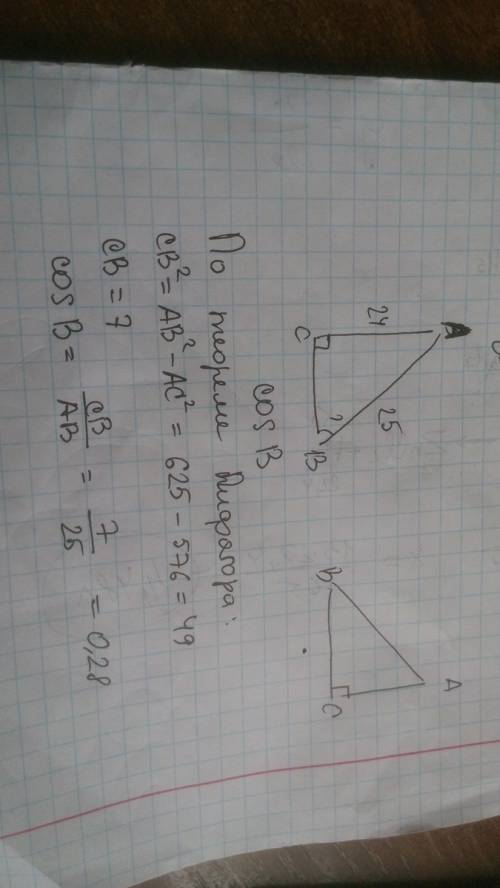 A
24
25
C
?
B
B
A
C
cos B
По теореме Пифагора:
CB² = AB² - AC² = 625 - 576 = 49
CB = 7
cos B = CB/AB = 7/25 = 0,28